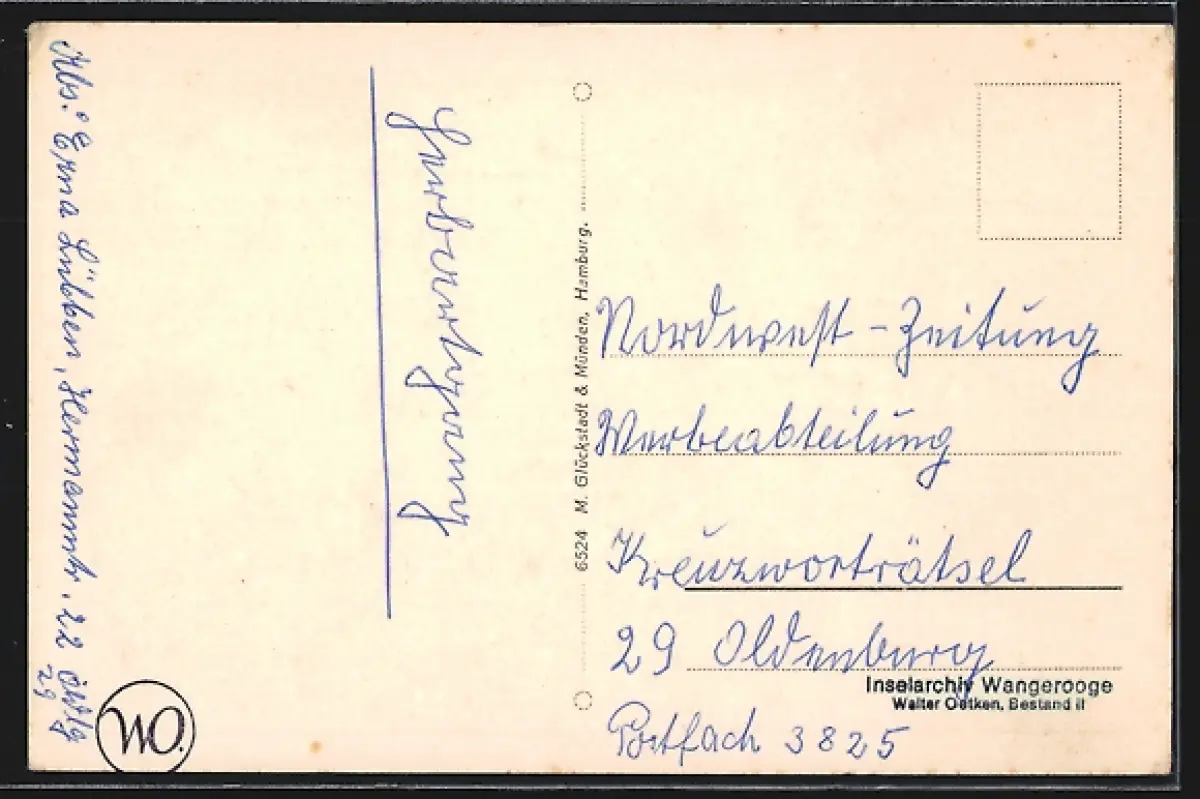 Abs: Erna Lübben, Hermannstr. 22
29 Oldbg
WO.
Herbartgang
6524 M. Glückstadt & Münden, Hamburg.
Nordwest-Zeitung
Werbeabteilung
Kreuzworträtsel
29 Oldenburg
Inselarchiv Wangerooge
Walter Oetken, Bestand II
Postfach 3825